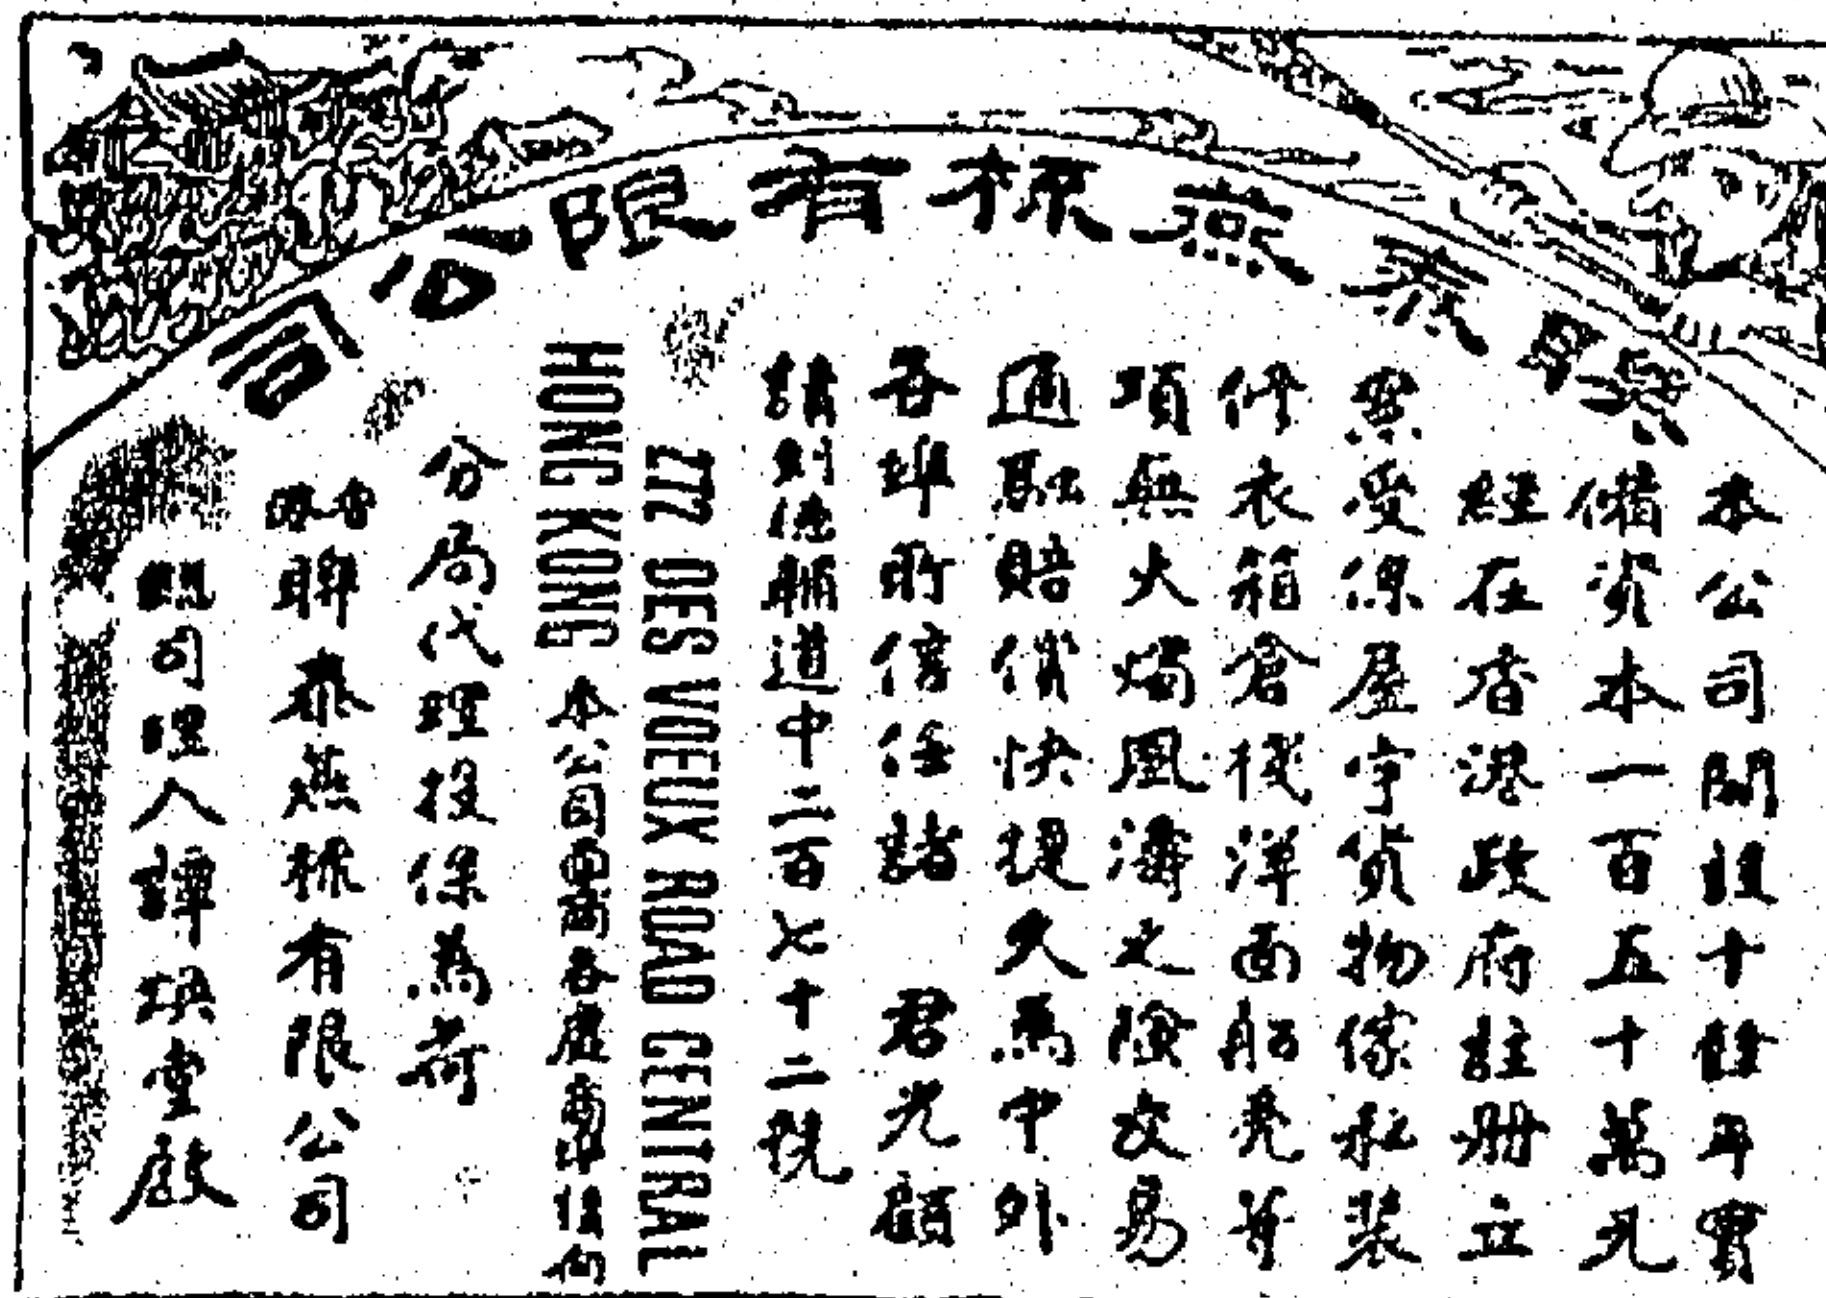 聯泰燕梳有限公司
本公司開設十餘年實
備資本一百五十萬元
經在香港政府註冊立
案受保屋宇貨物傢私裝
修衣箱倉棧洋面船壳等
項無火燭風濤之險交易
通融賠償快捷久為中外
各埠所信任諸 君光顧
請到德輔道中二百七十二號
272 DES VOEUX ROAD CENTRAL
HONG KONG 本公司 各處 或向
分局代理投保為荷
香港聯泰燕梳有限公司
司理人譚煥堂啟